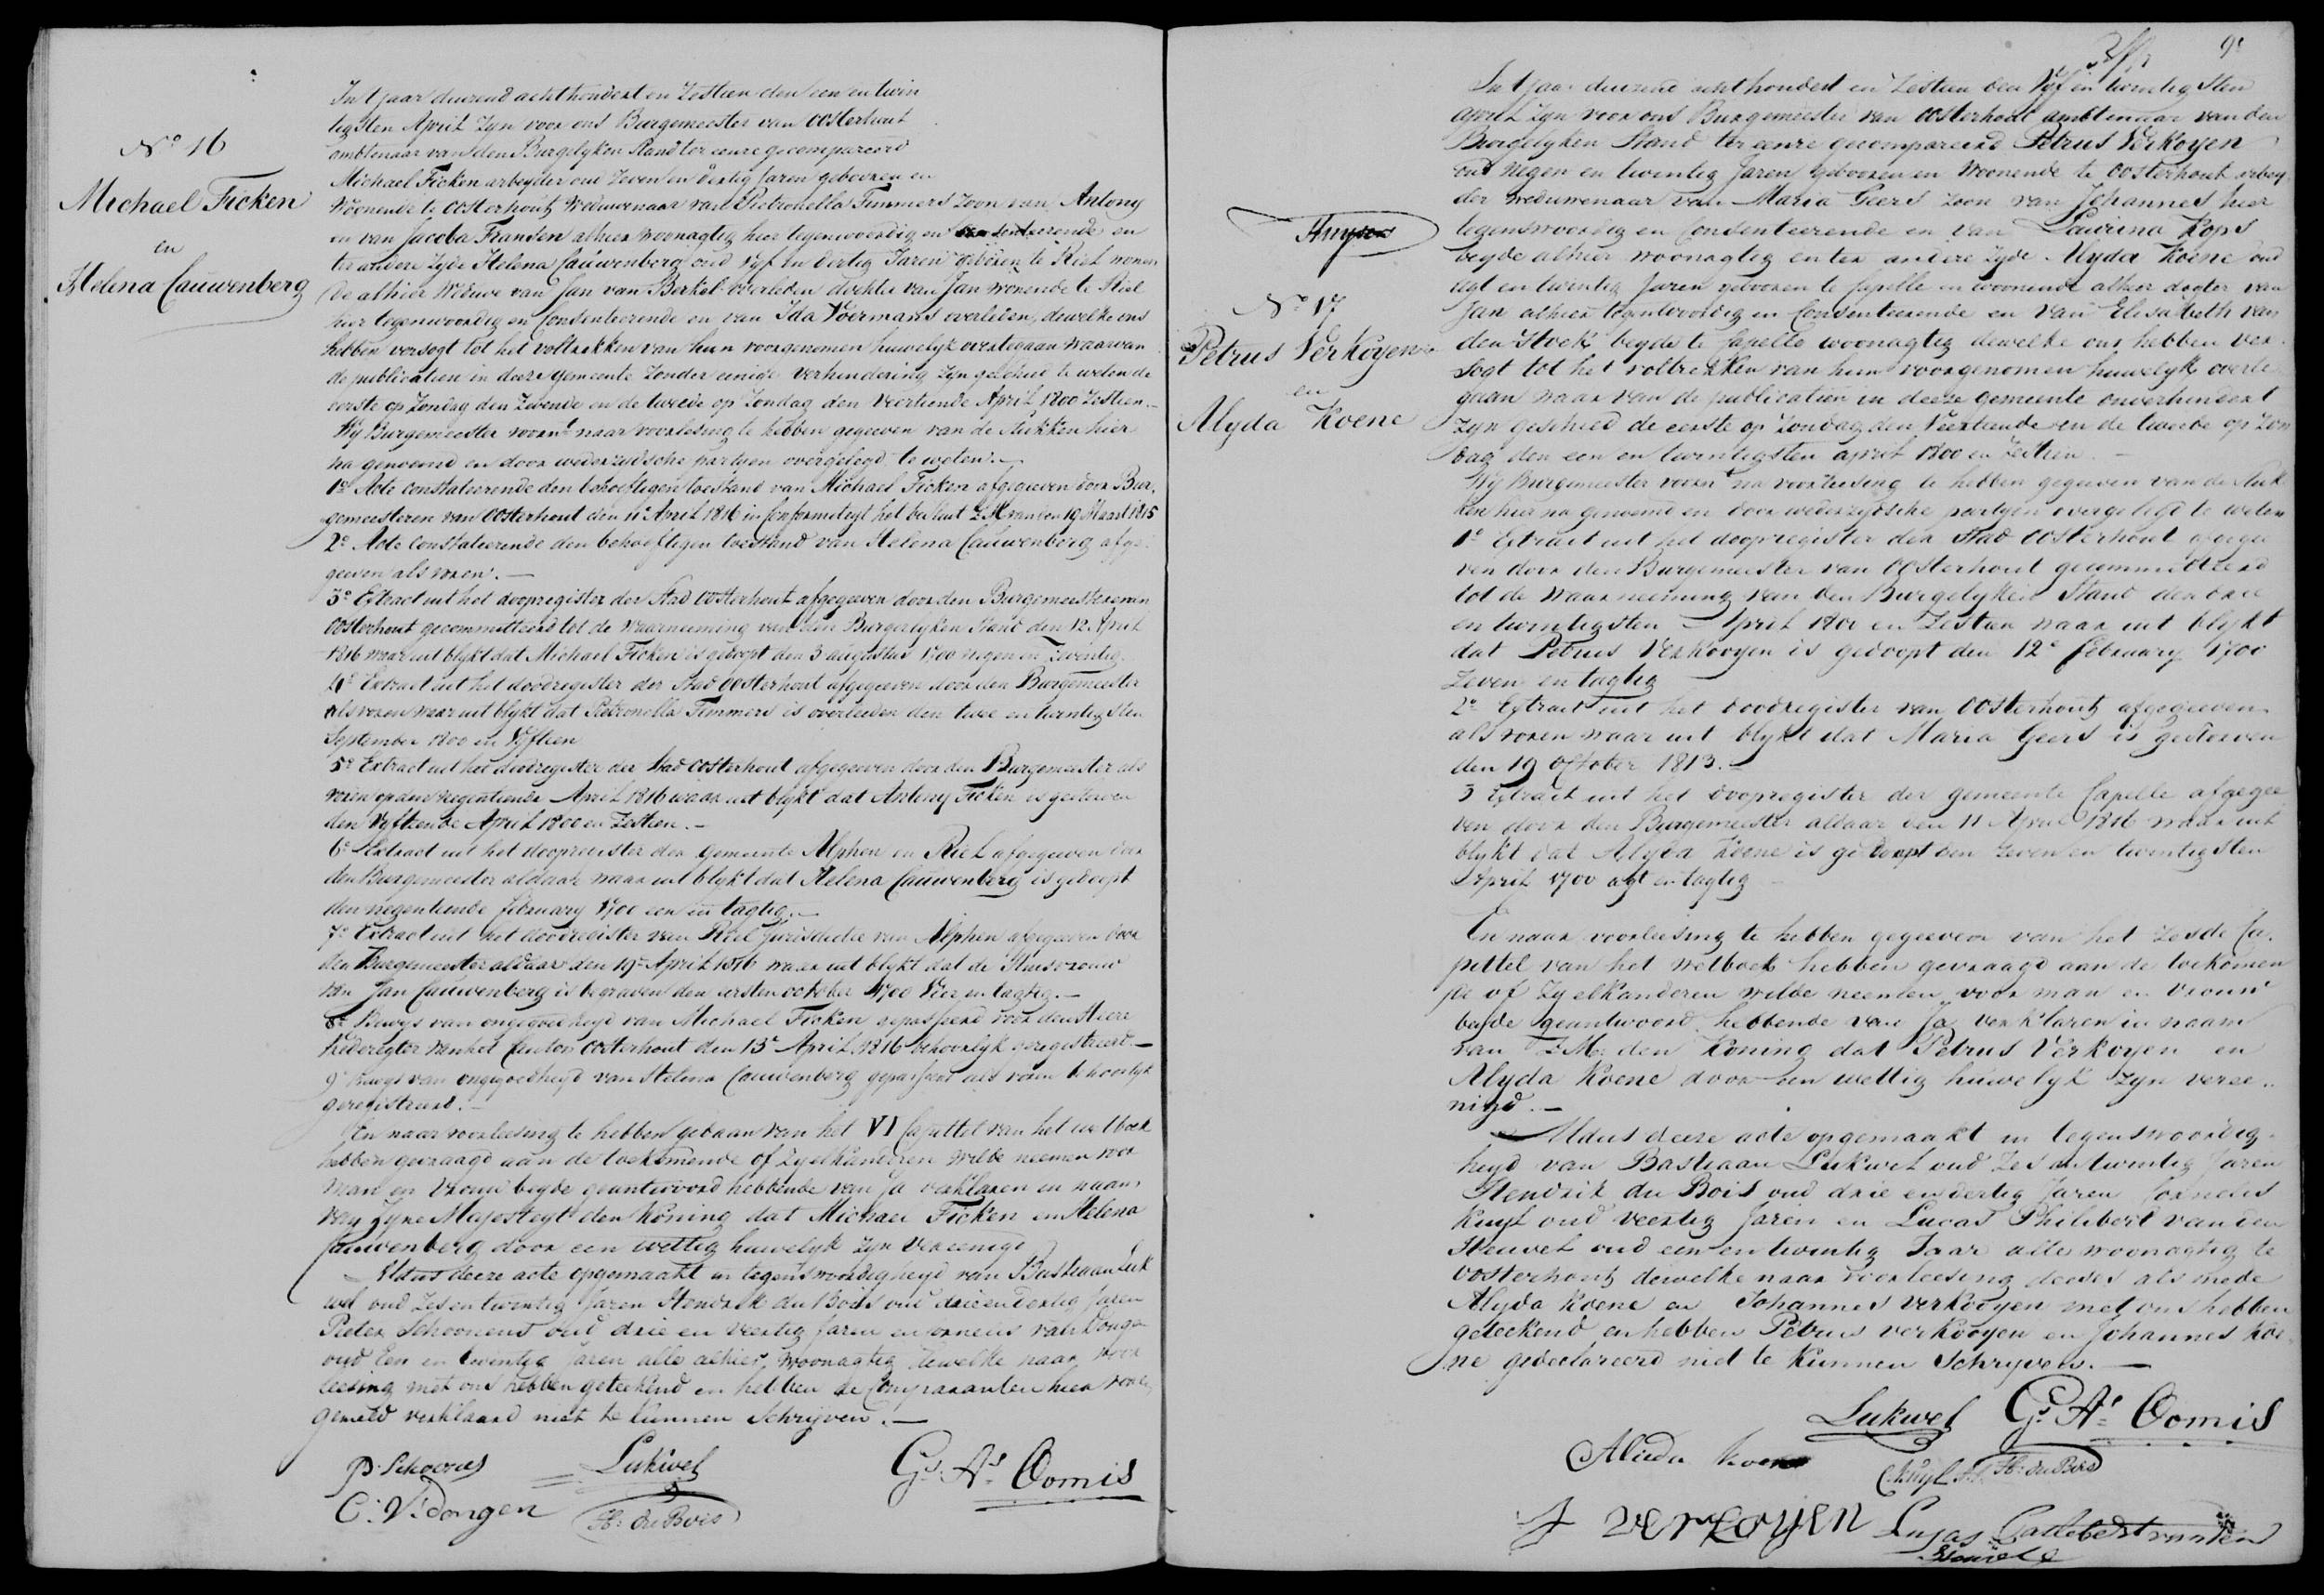 No 16
Michael Ficken
en
Helena Cauwenberg
In t jaar duizend achthondert en Zestien den een en twin
tigsten April Zyn voor ons Burgemeester van Oosterhout
ambtenaar van den Burgelyken Stand ter eenre gecompareerd
Michael Ficken arbeyder oud Zeven en dertig Jaren gebooren en
Woonende te Oosterhout Weduwenaar van Pietronella Timmers Zoon van Antony
en van Jacoba Fransen alhier woonagtig hier tegenwoordig en consenteerende en
ter andere Zyde Helena Cauwenberg oud Vyf en dertig Jaren gebooren te Riel wonen
de alhier Weduwe van Jan van Berkel overleden dochter van Jan wonende te Riel
hier tegenwoordig en Consenteerende en van Ida Voermans overleden, dewelke ons
hebben versogt tot het voltrekken van hun voorgenomen huwelyk overtegaan waarvan
de publicatien in deeze gemeente Zonder eenige verhindering Zyn geschied te weten de
eerste op Zondag den Zevende en de tweede op Zondag den Veertiende April 1800 Zestien.-
Wy Burgemeester voornt naar voorlesing te hebben gegeeven van de stukken hier
na genoemd en door wederzydsche partyen overgelegd te weten.-
1e Acte constateerende den behoeftigen toestand van Michael Ficken afgegeeven door Bur,
gemeesteren van Oosterhout den 11e April 1816 in conformiteyt het besluit Z.M. van den 19 Maart 1815
2e Acte Constateerende den behoeftigen toestand van Helena Cauwenberg afge
geeven als voren.-
3e Extract uit het doopregister der Stad Oosterhout afgegeeven door den Burgemeester van
Oosterhout gecommitteerd tot de Waarneeming van den Burgerlyken Stand den 12 April
1816 waar uit blykt dat Michael Ficken is gedoopt den 3 augustus 1700 negen en Zeventig.
4e Extract uit het doodregister der Stad Oosterhout afgegeeven door den Burgemeester
als voren waar uit blykt dat Pietronella Timmers is overleeden den twee en twintigsten
September 1800 en Vyftien
5e Extract uit het doodregister der Stad Oosterhout afgegeeven door den Burgemeester als
voren op den negentiende April 1816 waar uit blykt dat Antony Ficken is gestorven
den Vyftiende April 1800 en Zestien.-
6e Extract uit het doopregister der Gemeente Alphen en Riel afgegeeven door
den Burgemeester aldaar waar uit blykt dat Helena Cauwenberg is gedoopt
den negentiende february 1700 een en tagtig.-
7e Extract uit het doodregister van Riel Jurisdictie van Alphen afgegeeven door
den Burgemeester aldaar den 19e April 1816 waar uit blykt dat de Huisvrouw
van Jan Cauwenberg is begraven den eersten october 1700 Vier en tagtig.-
8e Bewys van ongegoedheyd van Michael Ficken gepasseerd voor den Heere
Vrederegter van het Canton Oosterhout den 13e April 1816 behoorlyk geregistreerd.-
9e Bewys van ongegoedheyd van Helena Cauwenberg gepasseerd als voren behoorlyk
geregistreerd.-
En naar voorleesing te hebben gedaan van het VI Capittel van het wetboek
hebben gevraagd aan de toekomende of Zy elkanderen wilde neemen voor
man en Vrouw beyde geantwoord hebbende van Ja verklaren in naam
van Zyne Majesteyt den Koning dat Michael Ficken en Helena
Cauwenberg door een wettig huwelyk zyn Vereenigt
Aldus deeze acte opgemaakt in tegenswoordigheyd van Bastiaan Luk
wel oud Zes en twintig Jaren Hendrik du Bois oud drie en dertig Jaren
Pieter Schoonens oud drie en Veertig Jaren en Cornelis van Donge
oud Een en twintig Jaren alle alhier, woonagtig dewelke naar voor
leesing met ons hebben geteekend en hebben de Comparanten hier voren
gemeld verklaard niet te kunnen Schryven.-
Lukwel
Gs. As. Oomis
C: V: Dongen
H: du Bois
9e
No 17
Petrus Verkoyen
en
Alyda Koene
In t jaar duizend acht hondert en Zestien den Vyf en twintigsten
april Zyn voor ons Burgemeester van Oosterhout ambtenaar van den
Burgelyken Stand ter eenre gecompareerd Petrus Verkoyen
oud Negen en twintig Jaren gebooren en Woonende te Oosterhout arbey
der weduwenaar van Maria Geers Zoon van Johannes hier
tegenswoordig en Consenteerende en van Laurina Kops
beyde alhier woonagtig en ter andere Zyde Alyda Koene oud
agt en twintig Jaren gebooren te Capelle en woonende alhier dogter van
Jan alhier tegenwoordig en Consenteerende en van Elisabeth van
den Hoek beyde te Capelle woonagtig dewelke ons hebben ver
sogt tot het voltrekken van hun voorgenomen huwelyk overte
gaan waar van de publicatien in deeze gemeente onverhindert
Zyn geschied de eerste op Zondag den Veertiende en de tweede op Zon
dag den een en twintigsten april 1800 en Zestien.-
Wy Burgemeester voornt na voorleesing te hebben gegeeven van de Stuk
ken hier na genoemd en door wederzydsche partyen overgelegd te weten
1e Extract uit het doopregister der Stad Oosterhout afgegee
ven door den Burgemeester van Oosterhout gecommitteerd
tot de Waarneeming van den Burgelyken Stand den drie
en twintigsten April 1800 en Zestien waar uit blykt
dat Petrus Verkooyen is gedoopt den 12e february 1700
Zeven en tagtig
2e Extract uit het doodregister van Oosterhout afgegeeven
als voren waar uit blykt dat Maria Geers is gestorven
den 19 October 1813.-
3 Extract uit het doopregister der gemeente Capelle afgegee
ven door den Burgemeester aldaar den 11 April 1816 waar uit
blykt dat Alyda Koene is gedoopt den Zeven en twintigsten
April 1700 agt en tagtig
En naar voorleesing te hebben gegeeven van het Zesde Ca.
pittel van het wetboek hebben gevraagd aan de toekomen
de of Zy elkanderen wilde neemen voor man en Vrouw
beyde geantwoord hebbende van Ja verklaren in naam
van Z.M. den Koning dat Petrus Verkoyen en
Alyda Koene door een wettig huwelyk Zyn veree..
nigd.-
Aldus deeze acte opgemaakt in tegenswoordig
heyd van Bastiaan Lukwel oud Zes en twintig Jaren
Hendrik du Bois oud drie en dertig Jaren Cornelis
Kuyl oud veertig Jaren en Lucas Philibert van den
Heuvel oud een en twintig Jaar alle woonagtig te
Oosterhout dewelke naar voorleesing deeses als mede
Alyda Koene en Johannes Verkooyen met ons hebben
geteekend en hebben Petrus verkooyen en Johannes Koe
ne gedeclareerd niet te kunnen Schryven.-
Lukwel
Gs. As. Oomis
Alieda Koene
H: du Bois
J verkoyen